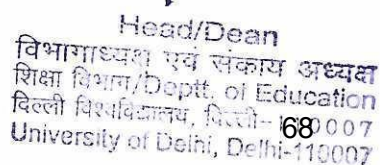 Head/Dean
विभागाध्यक्ष एवं संकाय अध्यक्ष
शिक्षा विभाग/Deptt. of Education
दिल्ली विश्वविद्यालय, दिल्ली-110007
68
University of Delhi, Delhi-110007